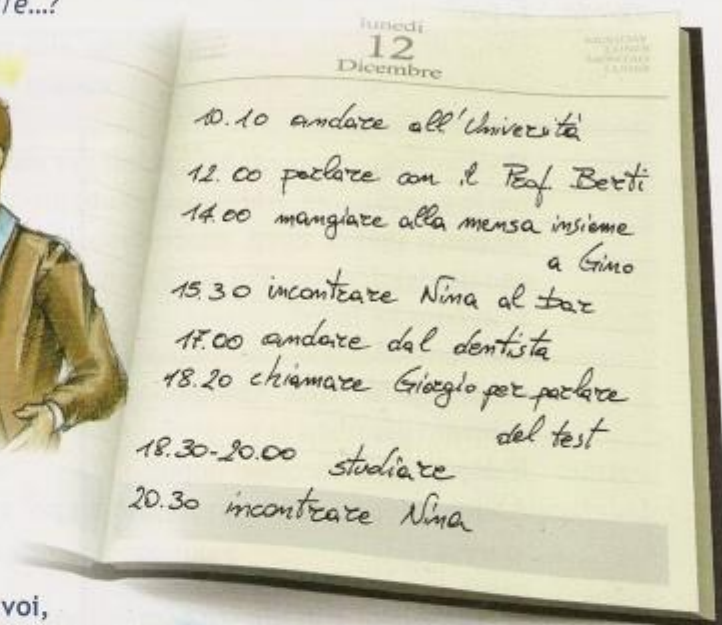 lunedì
12
Dicembre
10.10 andare all'Università
12.00 parlare con il Prof. Berti
14.00 mangiare alla mensa insieme
a Gino
15.30 incontrare Nina al bar
17.00 andare dal dentista
18.20 chiamare Giorgio per parlare
del test
18.30-20.00 studiare
20.30 incontrare Nina
voi,